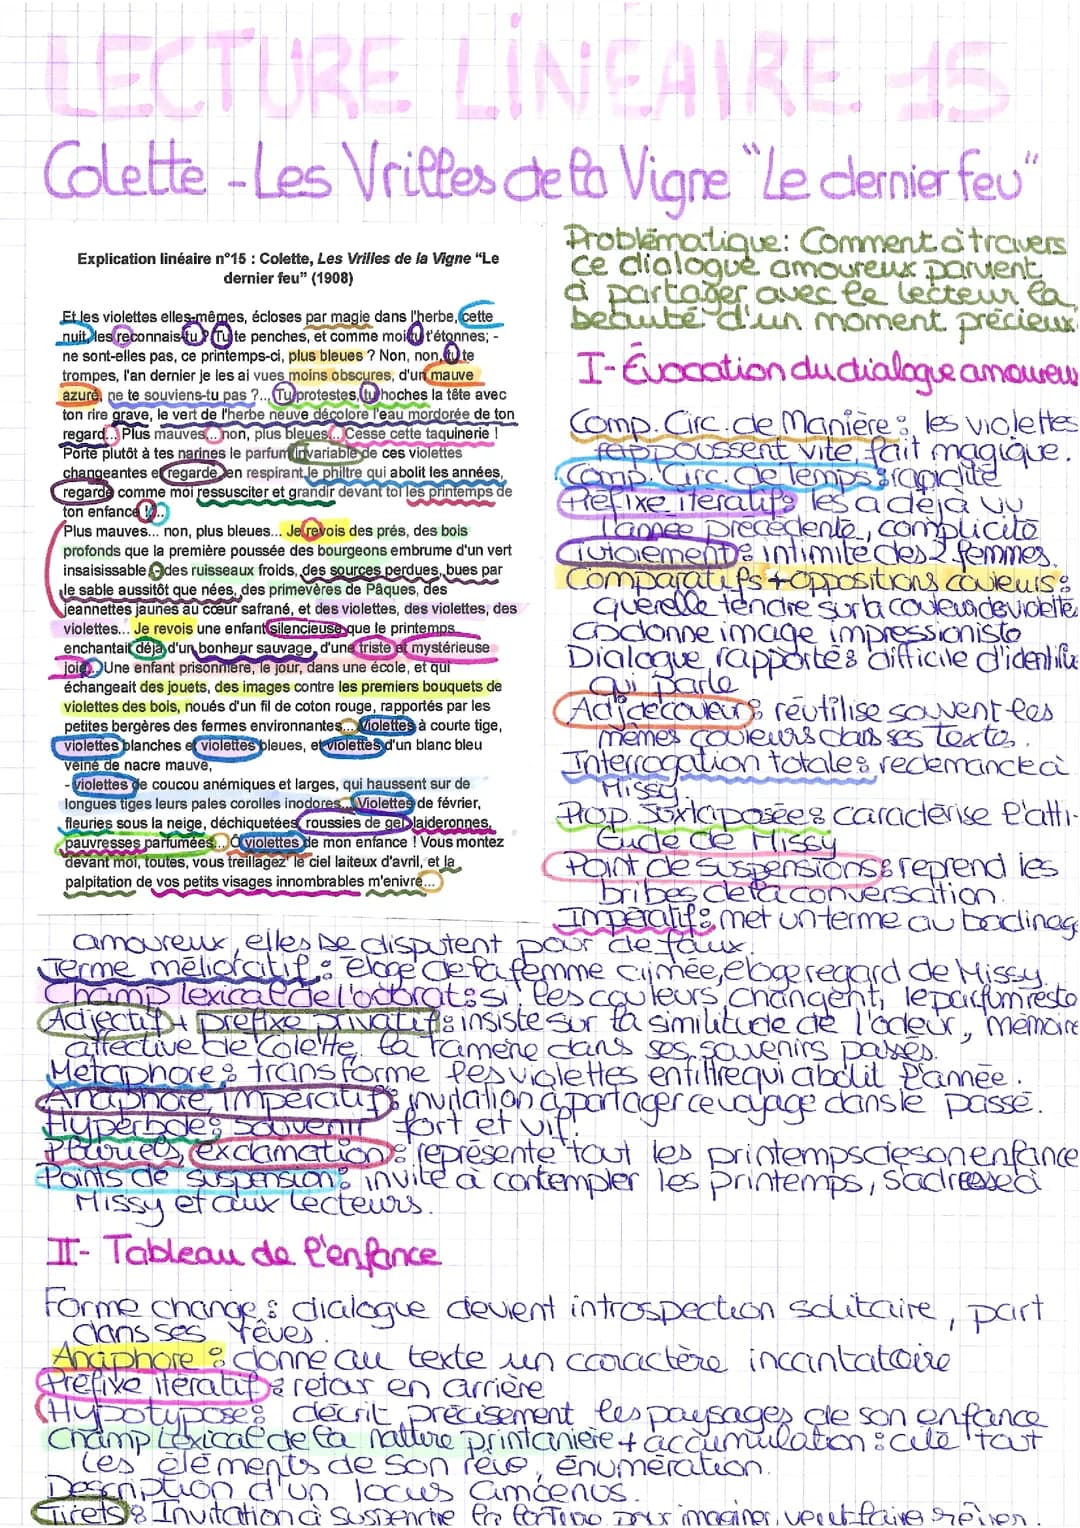 LECTURE LINÉAIRE 15
Colette - Les Vrilles de la Vigne "Le dernier feu"
Explication linéaire n°15 : Colette, Les Vrilles de la Vigne "Le
dernier feu" (1908)
Et les violettes elles-mêmes, écloses par magie dans l'herbe, cette
nuit, les reconnais-tu ? Tu te penches, et comme moi tu t'étonnes; -
ne sont-elles pas, ce printemps-ci, plus bleues ? Non, non, tu te
trompes, l'an dernier je les ai vues moins obscures, d'un mauve
azuré, ne te souviens-tu pas ?... Tu protestes, tu hoches la tête avec
ton rire grave, le vert de l'herbe neuve décolore l'eau mordorée de ton
regard... Plus mauves... non, plus bleues... Cesse cette taquinerie !
Porte plutôt à tes narines le parfum invariable de ces violettes
changeantes et regarde, en respirant le philtre qui abolit les années,
regarde comme moi ressusciter et grandir devant toi les printemps de
ton enfance !...
Plus mauves... non, plus bleues... Je revois des prés, des bois
profonds que la première poussée des bourgeons embrume d'un vert
insaisissable - des ruisseaux froids, des sources perdues, bues par
le sable aussitôt que nées, des primevères de Pâques, des
jeannettes jaunes au cœur safrané, et des violettes, des violettes, des
violettes... Je revois une enfant silencieuse que le printemps
enchantait déjà d'un bonheur sauvage, d'une triste et mystérieuse
joie... Une enfant prisonnière, le jour, dans une école, et qui
échangeait des jouets, des images contre les premiers bouquets de
violettes des bois, noués d'un fil de coton rouge, rapportés par les
petites bergères des fermes environnantes... Violettes à courte tige,
violettes blanches et violettes bleues, et violettes d'un blanc bleu
veiné de nacre mauve,
- violettes de coucou anémiques et larges, qui haussent sur de
longues tiges leurs pales corolles inodores... Violettes de février,
fleuries sous la neige, déchiquetées, roussies de gel, laideronnes,
pauvresses parfumées... Ô violettes de mon enfance ! Vous montez
devant moi, toutes, vous treillagez le ciel laiteux d'avril, et la
palpitation de vos petits visages innombrables m'enivre...
Problématique: Comment à travers
ce dialogue amoureux parvient
à partager avec le lecteur la
beauté d'un moment précieux.
I- Évocation du dialogue amoureux
Comp. Circ. de Manière : les violettes
poussent vite, fait magique.
Comp. Circ. de Temps : rapidité
Préfixe itératif : les a déjà vu
l'année précédente, complicité
Tutoiement : intimité des 2 femmes.
Comparatifs + oppositions couleurs :
querelle tendre sur la couleur des violette
donne image impressionisto
Dialogue rapportés difficile d'identifie
qui parle
Adj de couleur : réutilise souvent les
mêmes couleurs dans ses textes.
Interrogation totale : redemande à
Missy.
Prop. Juxtaposées : caractérise l'atti-
tude de Missy
Point de suspensions : reprend les
bribes de la conversation.
Impératif : met un terme au badinage
amoureux, elles se disputent pour de faux.
Terme mélioratif : éloge de la femme aimée, éloge regard de Missy.
Champ lexical de l'odorat : si les couleurs changent, le parfum reste
Adjectif + prefixe privatif : insiste sur la similitude de l'odeur, mémoire
affective de Colette, la ramène dans ses souvenirs passés.
Métaphore : transforme les violettes en filtre qui abolit l'année.
Anaphore, impératif : invitation à partager ce voyage dans le passé.
Hyperbole : souvenir fort et vif.
Pluriels, exclamation : représente tout les printemps de son enfance
Points de suspension : invite à contempler les printemps, s'adresse à
Missy et aux lecteurs.
II- Tableau de l'enfance
Forme change : dialogue devient introspection solitaire, part
dans ses rêves.
Anaphore : donne au texte un caractère incantatoire
Préfixe itératif : retour en arrière
Hypotypose : décrit précisement les paysages de son enfance
Champ Lexical de la nature printanière + accumulation : cite tout
les éléments de son rêve, énumération.
Description d'un locus amoenus.
Tirets : Invitation à suspendre la lecture pour imaginer, veut faire rêver.